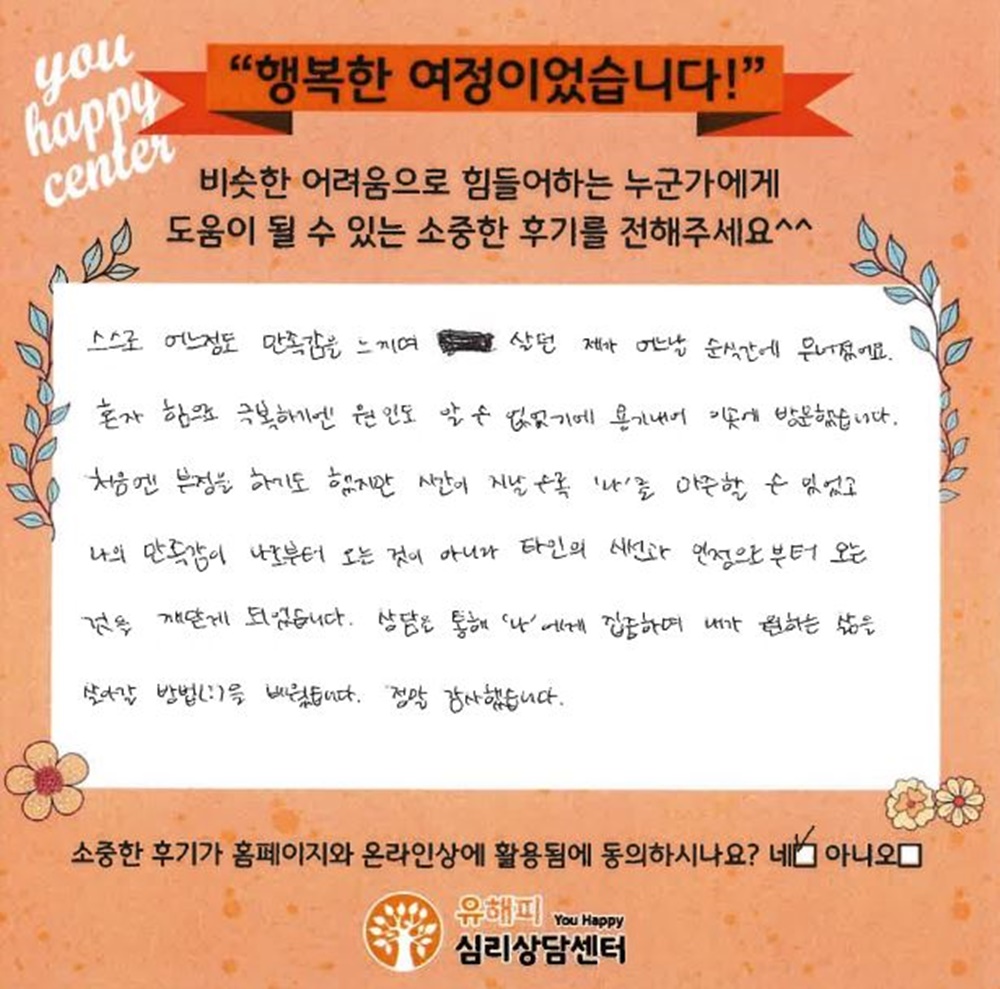 you
happy
center
“행복한 여정이었습니다!”
비슷한 어려움으로 힘들어하는 누군가에게
도움이 될 수 있는 소중한 후기를 전해주세요^^
스스로 어느정도 만족감을 느끼며 살던 제가 어느날 순식간에 무너졌어요.
혼자 힘으로 극복하기엔 원인도 알 수 없었기에 용기내어 이곳에 방문했습니다.
처음엔 부정을 하기도 했지만 시간이 지날수록 '나'를 마주할 수 있었고
나의 만족감이 나로부터 오는 것이 아니라 타인의 시선과 인정으로부터 오는
것을 깨닫게 되었습니다. 상담을 통해 '나'에게 집중하며 내가 원하는 삶을
살아갈 방법(:)을 배웠습니다. 정말 감사했습니다.
소중한 후기가 홈페이지와 온라인상에 활용됨에 동의하시나요? 네 아니오
유해피 You Happy
심리상담센터